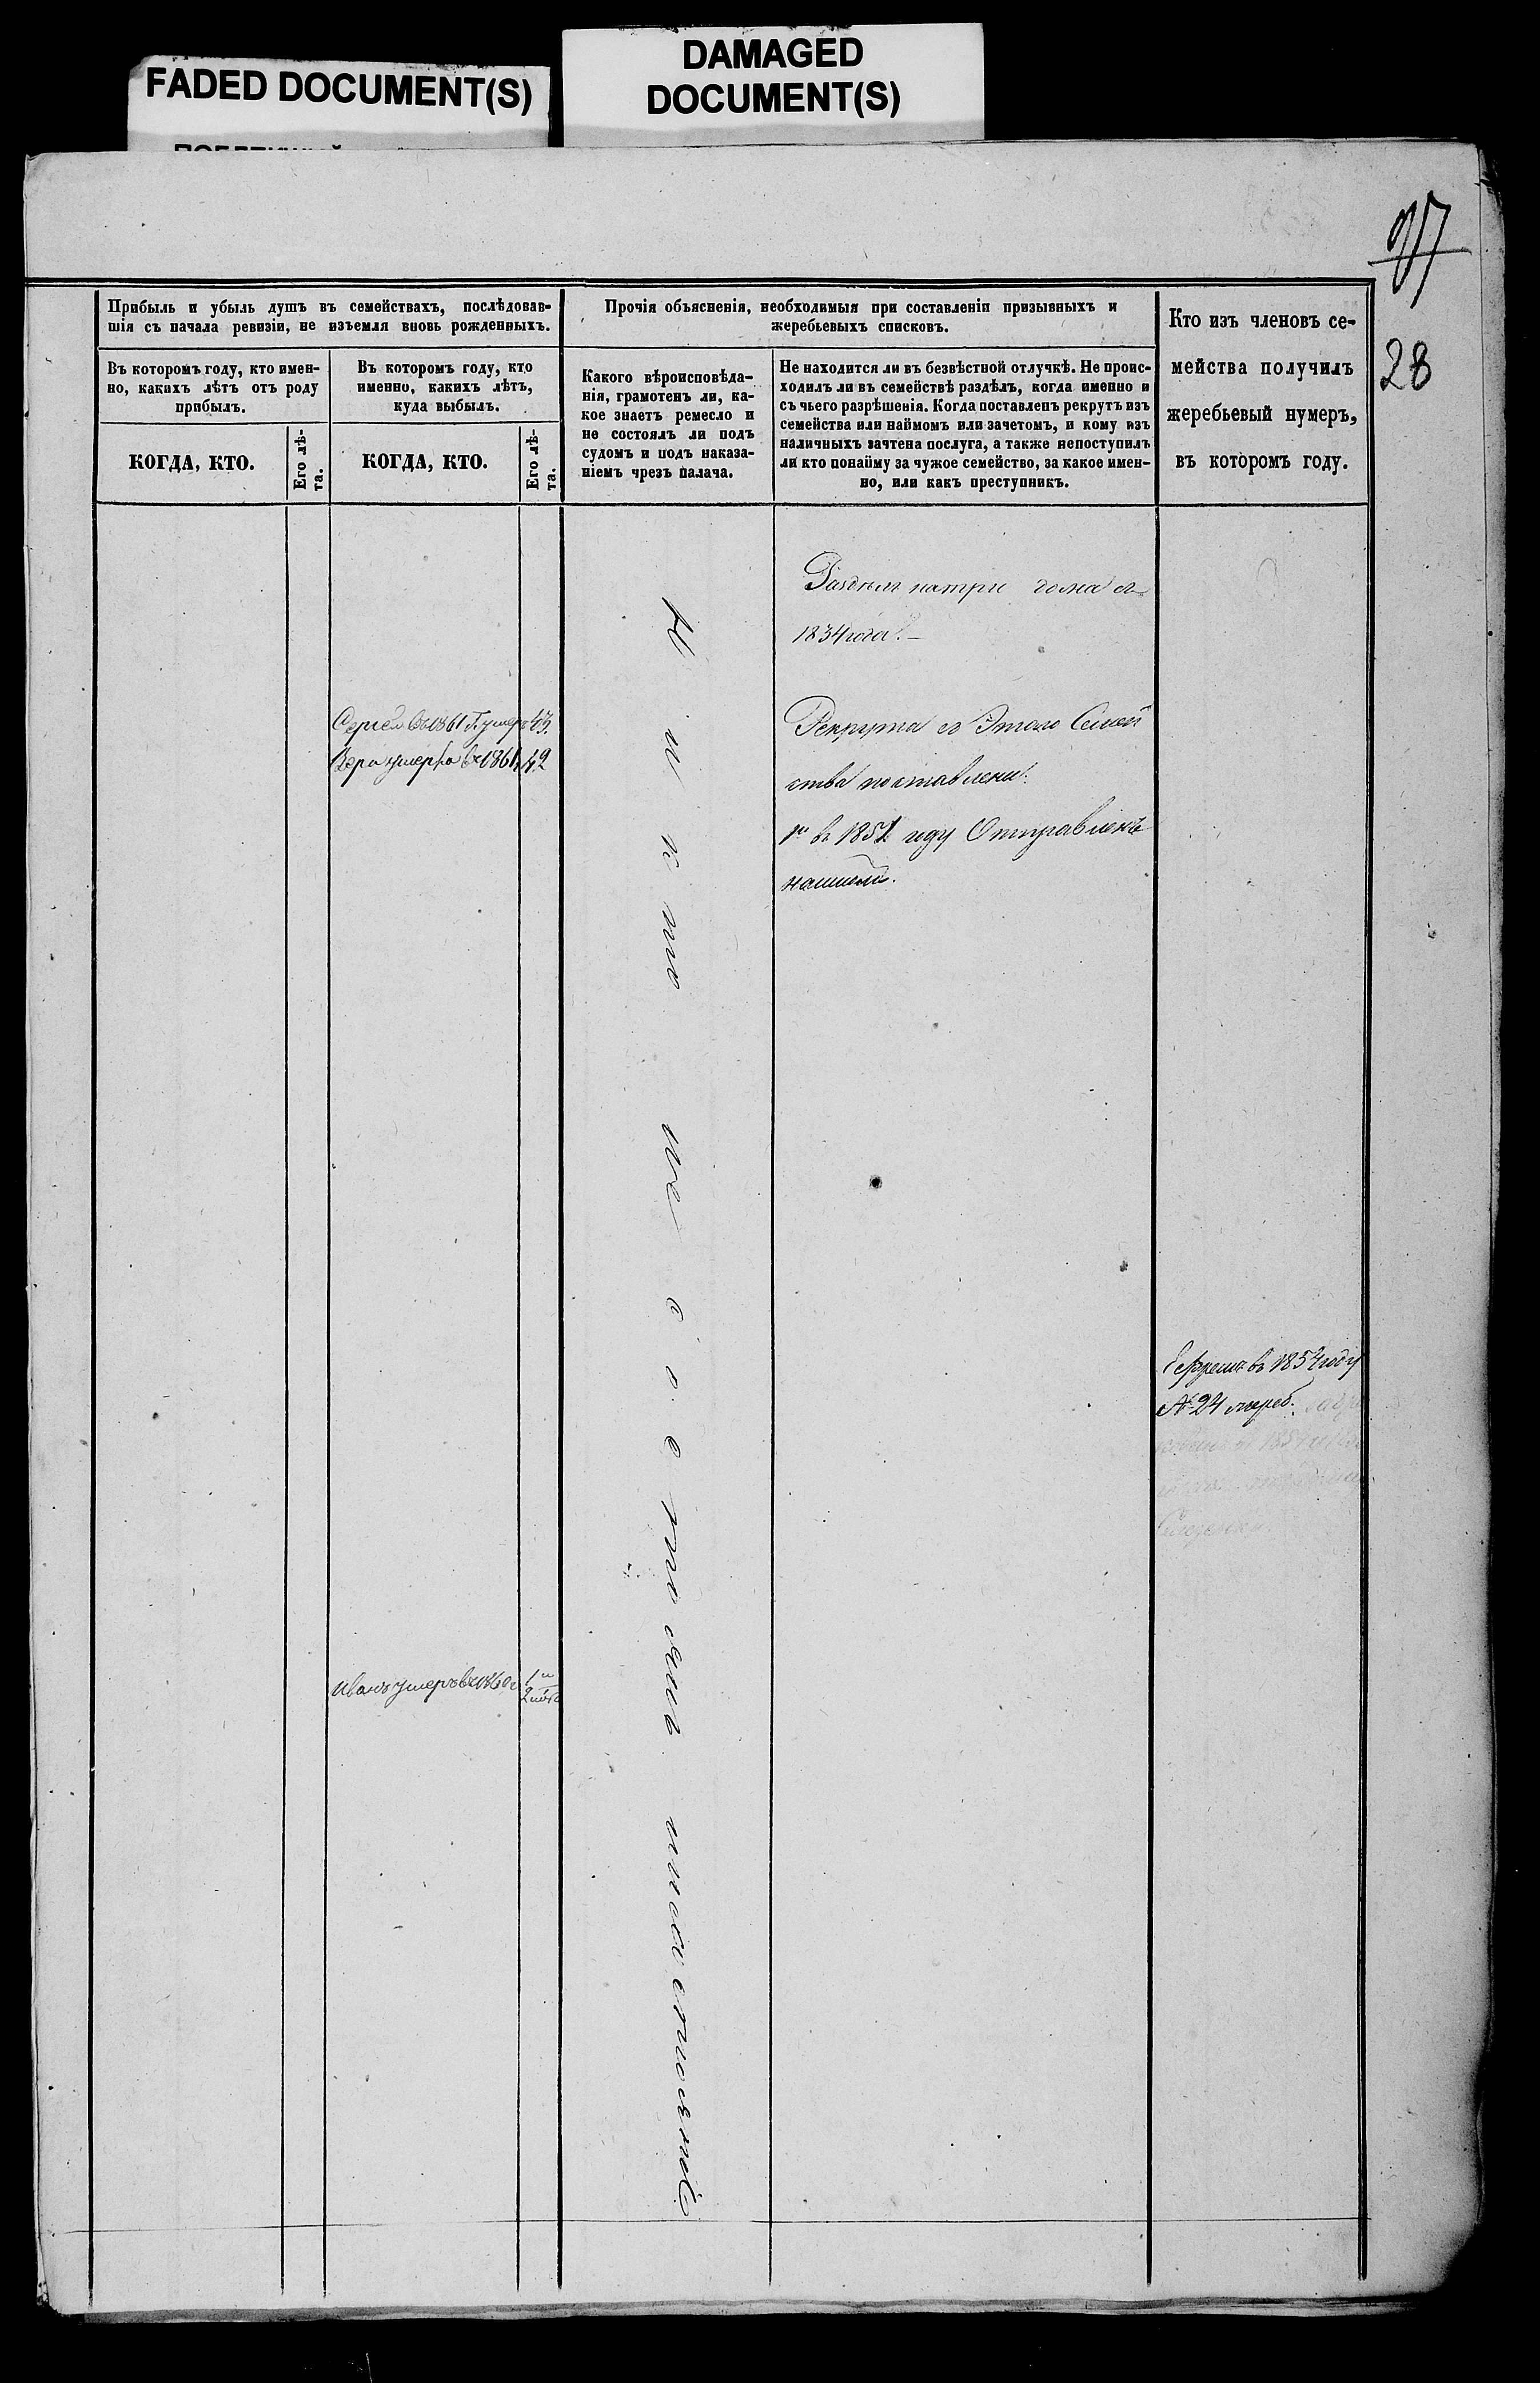 FADED DOCUMENT(S)
DAMAGED
DOCUMENT(S)
28
Прибыль и убыль душъ въ семействахъ, послѣдовав-
шія съ начала ревизіи, не изъемля вновь рожденныхъ.
Въ которомъ году, кто имен-
но, какихъ лѣтъ отъ роду
прибылъ.
КОГДА, КТО.
Его лѣ-
та.
Въ которомъ году, кто
именно, какихъ лѣтъ,
куда выбылъ.
КОГДА, КТО.
Его лѣ-
та.
Прочія объясненія, необходимыя при составленіи призывныхъ и
жеребьевыхъ списковъ.
Какого вѣроисповѣда-
нія, грамотенъ ли, ка-
кое знаетъ ремесло и
не состоялъ ли подъ
судомъ и подъ наказа-
ніемъ чрезъ палача.
Не находится ли въ безвѣстной отлучкѣ. Не проис-
ходилъ ли въ семействѣ раздѣлъ, когда именно и
съ чьего разрѣшенія. Когда поставленъ рекрутъ изъ
семейства или наймомъ или зачетомъ, и кому изъ
наличныхъ зачтена послуга, а также непоступилъ
ли кто понайму за чужое семейство, за какое имен-
но, или какъ преступникъ.
Кто изъ членовъ се-
мейства получилъ
жеребьевый нумеръ,
въ которомъ году.
Сергей въ 1861 г. умеръ 43.
Вера умерла въ 1861 42
Иванъ умеръ въ 1860 г
Никто не состоитъ
Разделъ натри дома съ
1834 года.
Рекрута съ Этого Семей
ства поставлены:
1й въ 1851 году Отправленъ
Ефремъ въ 1854 году
№ 24 жереб.